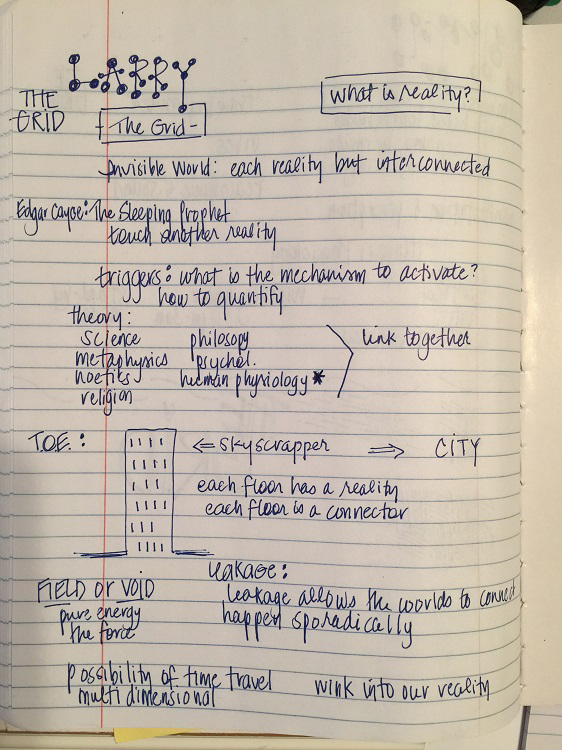 LARRY
THE GRID
The Grid -
What is reality?
Invisible World: each reality but interconnected
Edgar Cayce: The Sleeping Prophet
touch another reality
triggers: what is the mechanism to activate?
how to quantify
theory:
science philosopy
metaphysics psychol.
noetics human physiology *
religion
link together
T.O.E.: ⇐ skyscrapper ⇒ CITY
each floor has a reality
each floor is a connector
leakage:
FIELD or VOID leakage allows the worlds to connect
pure energy happen sporadically
the force
possibility of time travel wink into our reality
multi dimensional